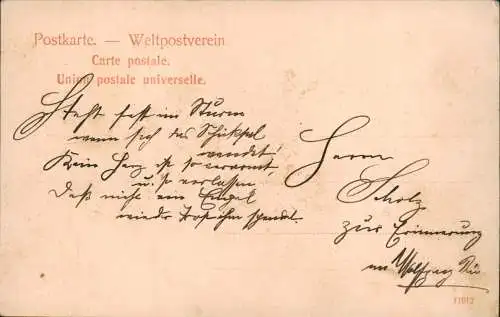 Postkarte. — Weltpostverein
Carte postale.
Union postale universelle.
Steht fest im Sturm
wenn sich das Schicksal
wendet!
Kein Herz ist so verarmt,
u. so verlassen
Daß nicht ein Engel
wieder Trost ihm spendet.
Herrn
Scholz
zur Erinnerung
an Wolfgang
11012